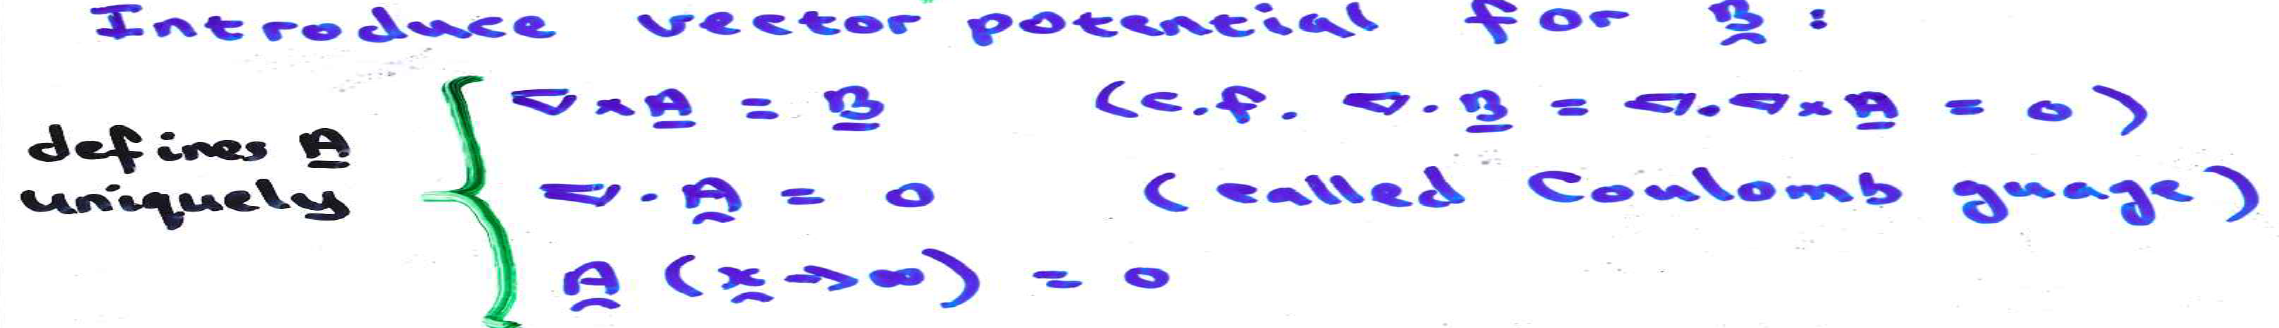 Introduce vector potential for B :
∇×A = B (c.f. ∇.B = ∇.∇×A = 0)
defines A uniquely
∇.A = 0 (called Coulomb guage)
A (x→∞) = 0